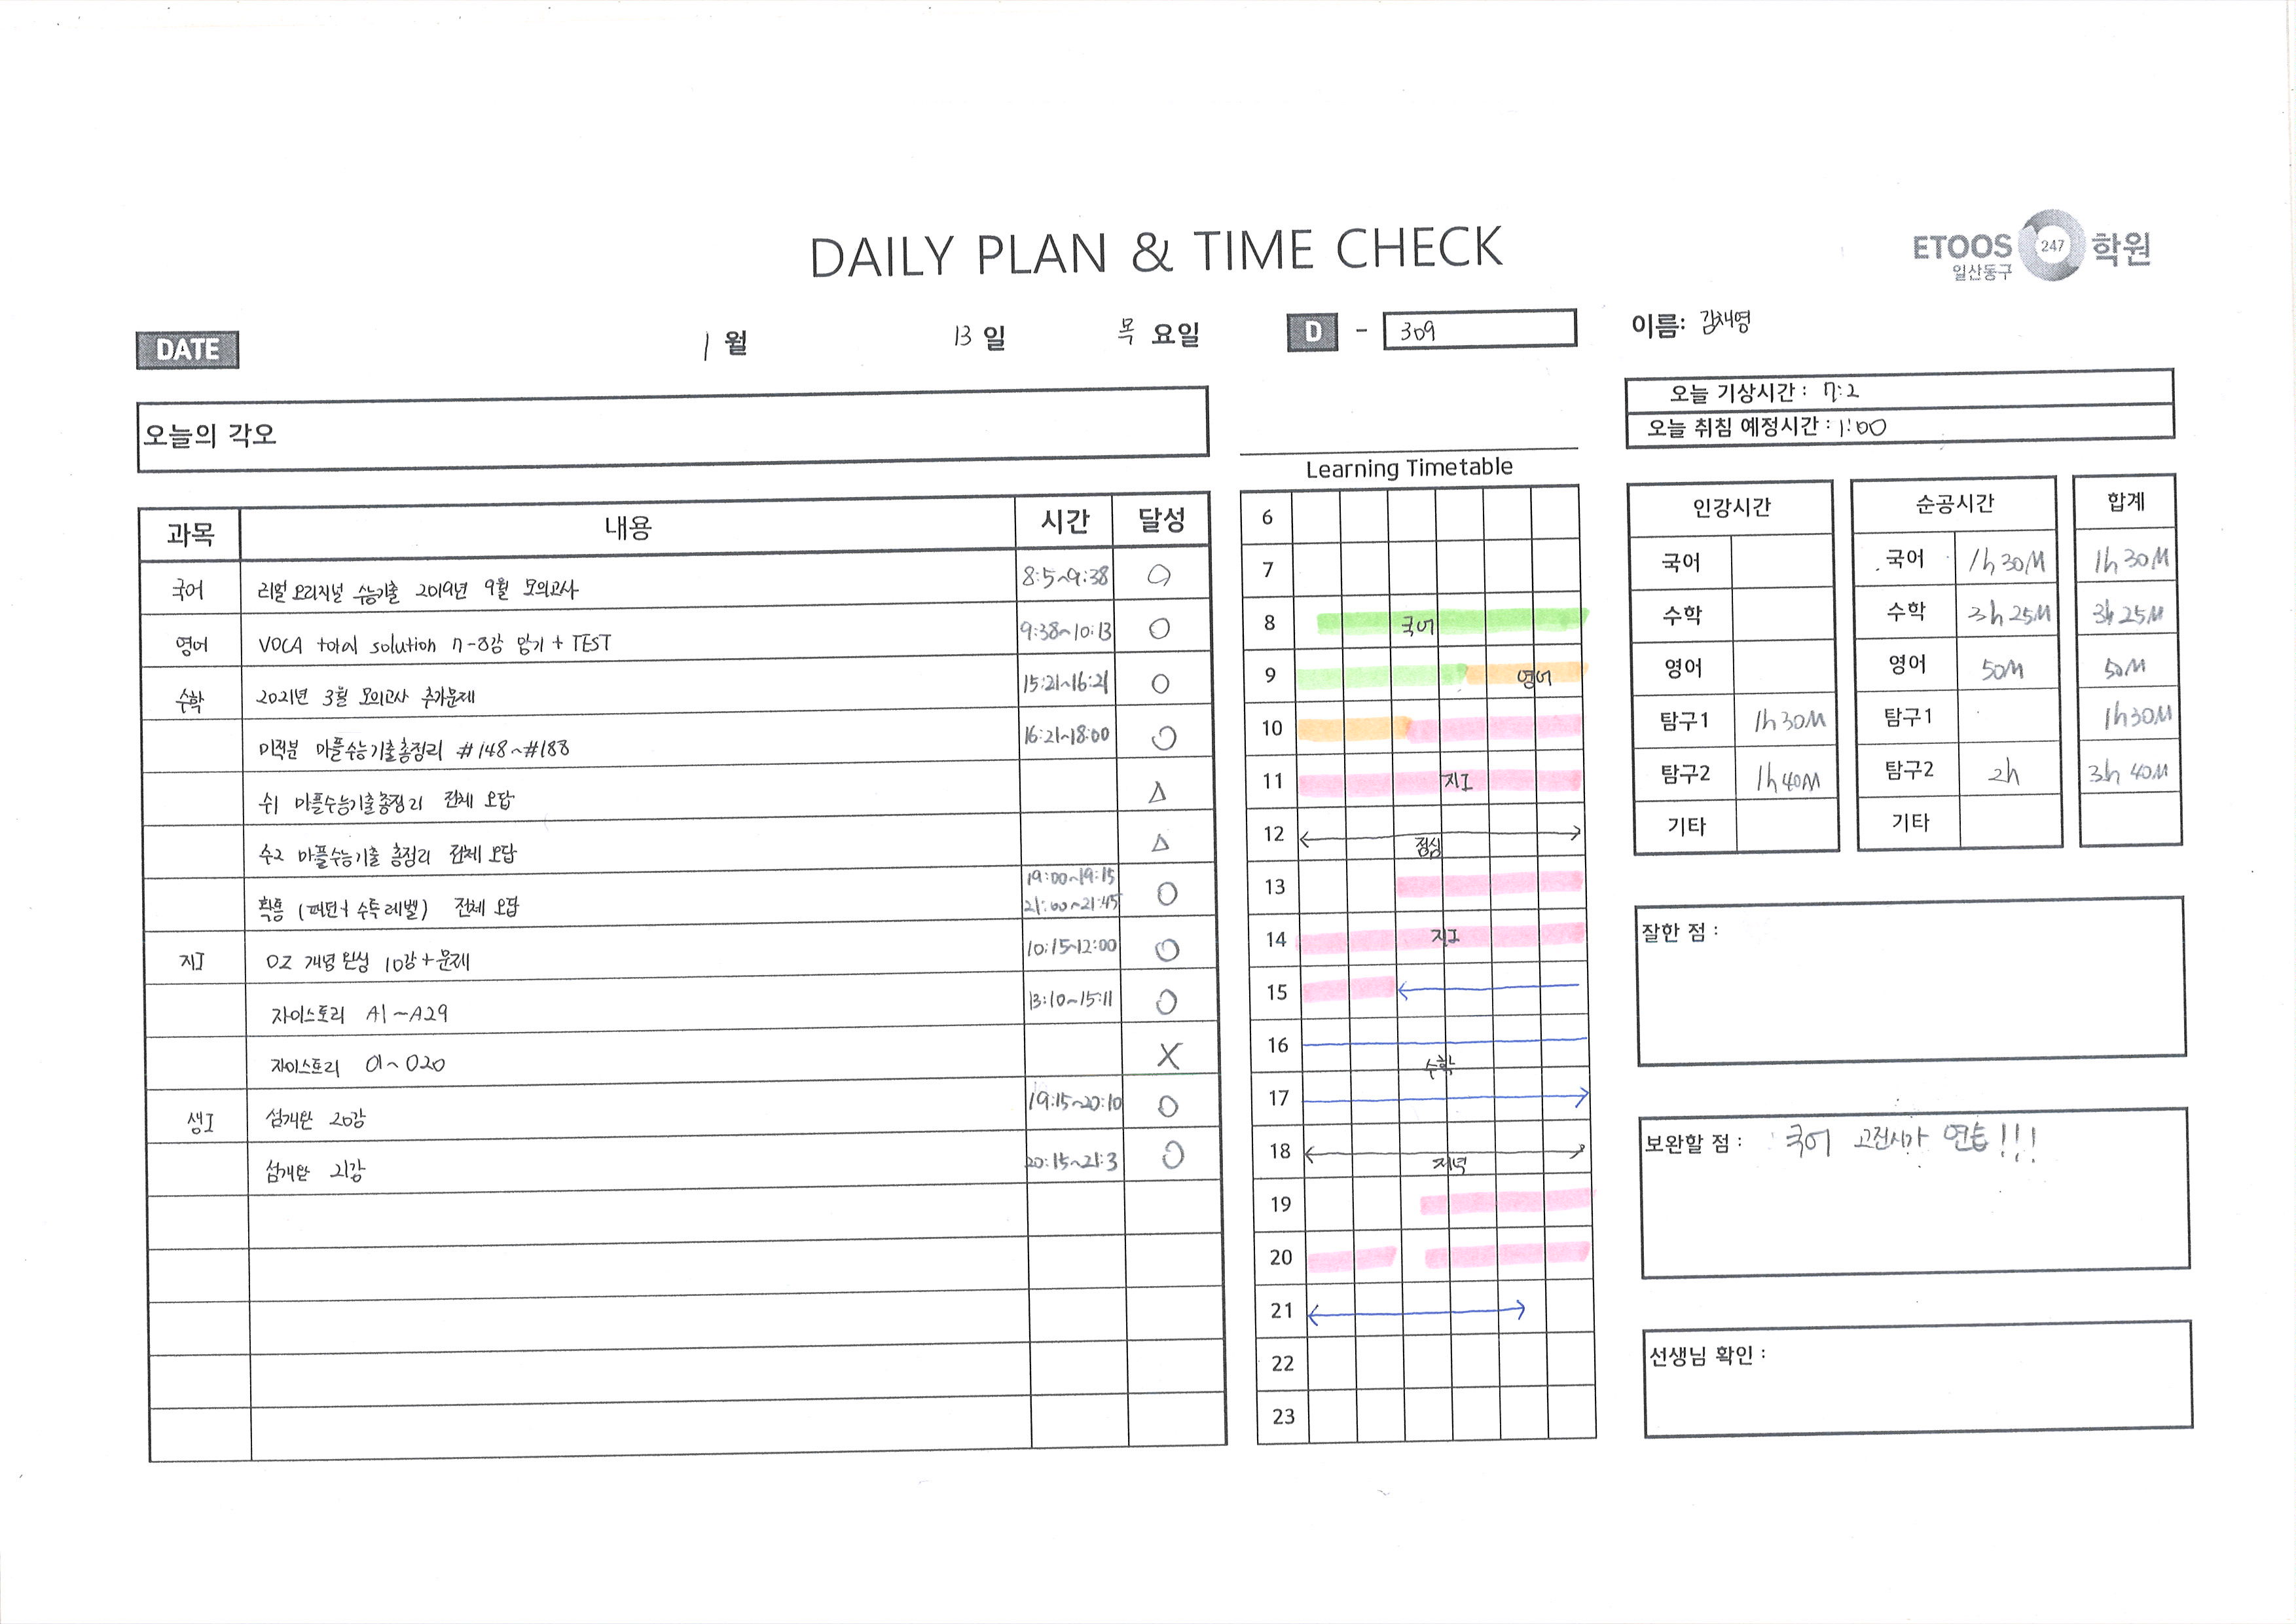 DAILY PLAN & TIME CHECK
ETOOS 247 학원
일산동구
DATE 1 월 13 일 목 요일 D - 309 이름: 김채영
오늘의 각오
오늘 기상시간 : 7:2
오늘 취침 예정시간 : 1:00
과목 내용 시간 달성
국어 리얼 오리지널 수능기출 2019년 9월 모의고사 8:5~9:38 O
영어 VOCA total solution 7-8강 암기 + TEST 9:38~10:13 O
수학 2021년 3월 모의고사 추가문제 15:21~16:21 O
미적분 마플수능기출총정리 #148~#188 16:21~18:00 O
수1 마플수능기출총정리 전체 오답 △
수2 마플수능기출 총정리 전체 오답 △
확통 (패턴+수특레벨) 전체 오답 19:00~19:15 O
21:00~21:45
지I OZ 개념완성 10강+문제 10:15~12:00 O
자이스토리 A1~A29 13:10~15:11 O
자이스토리 O1~O20 X
생I 섬개완 20강 19:15~20:10 O
섬개완 21강 20:15~21:3 O
Learning Timetable
6
7
8 국어
9 영어
10
11 지I
12 점심
13
14 지I
15
16 수학
17
18 저녁
19
20
21
22
23
인강시간 순공시간 합계
국어 국어 1h 30M 1h 30M
수학 수학 3h 25M 3h 25M
영어 영어 50M 50M
탐구1 1h 30M 탐구1 1h30M
탐구2 1h 40M 탐구2 2h 3h 40M
기타 기타
잘한 점 :
보완할 점 : 국어 고전시가 연습!!!
선생님 확인 :